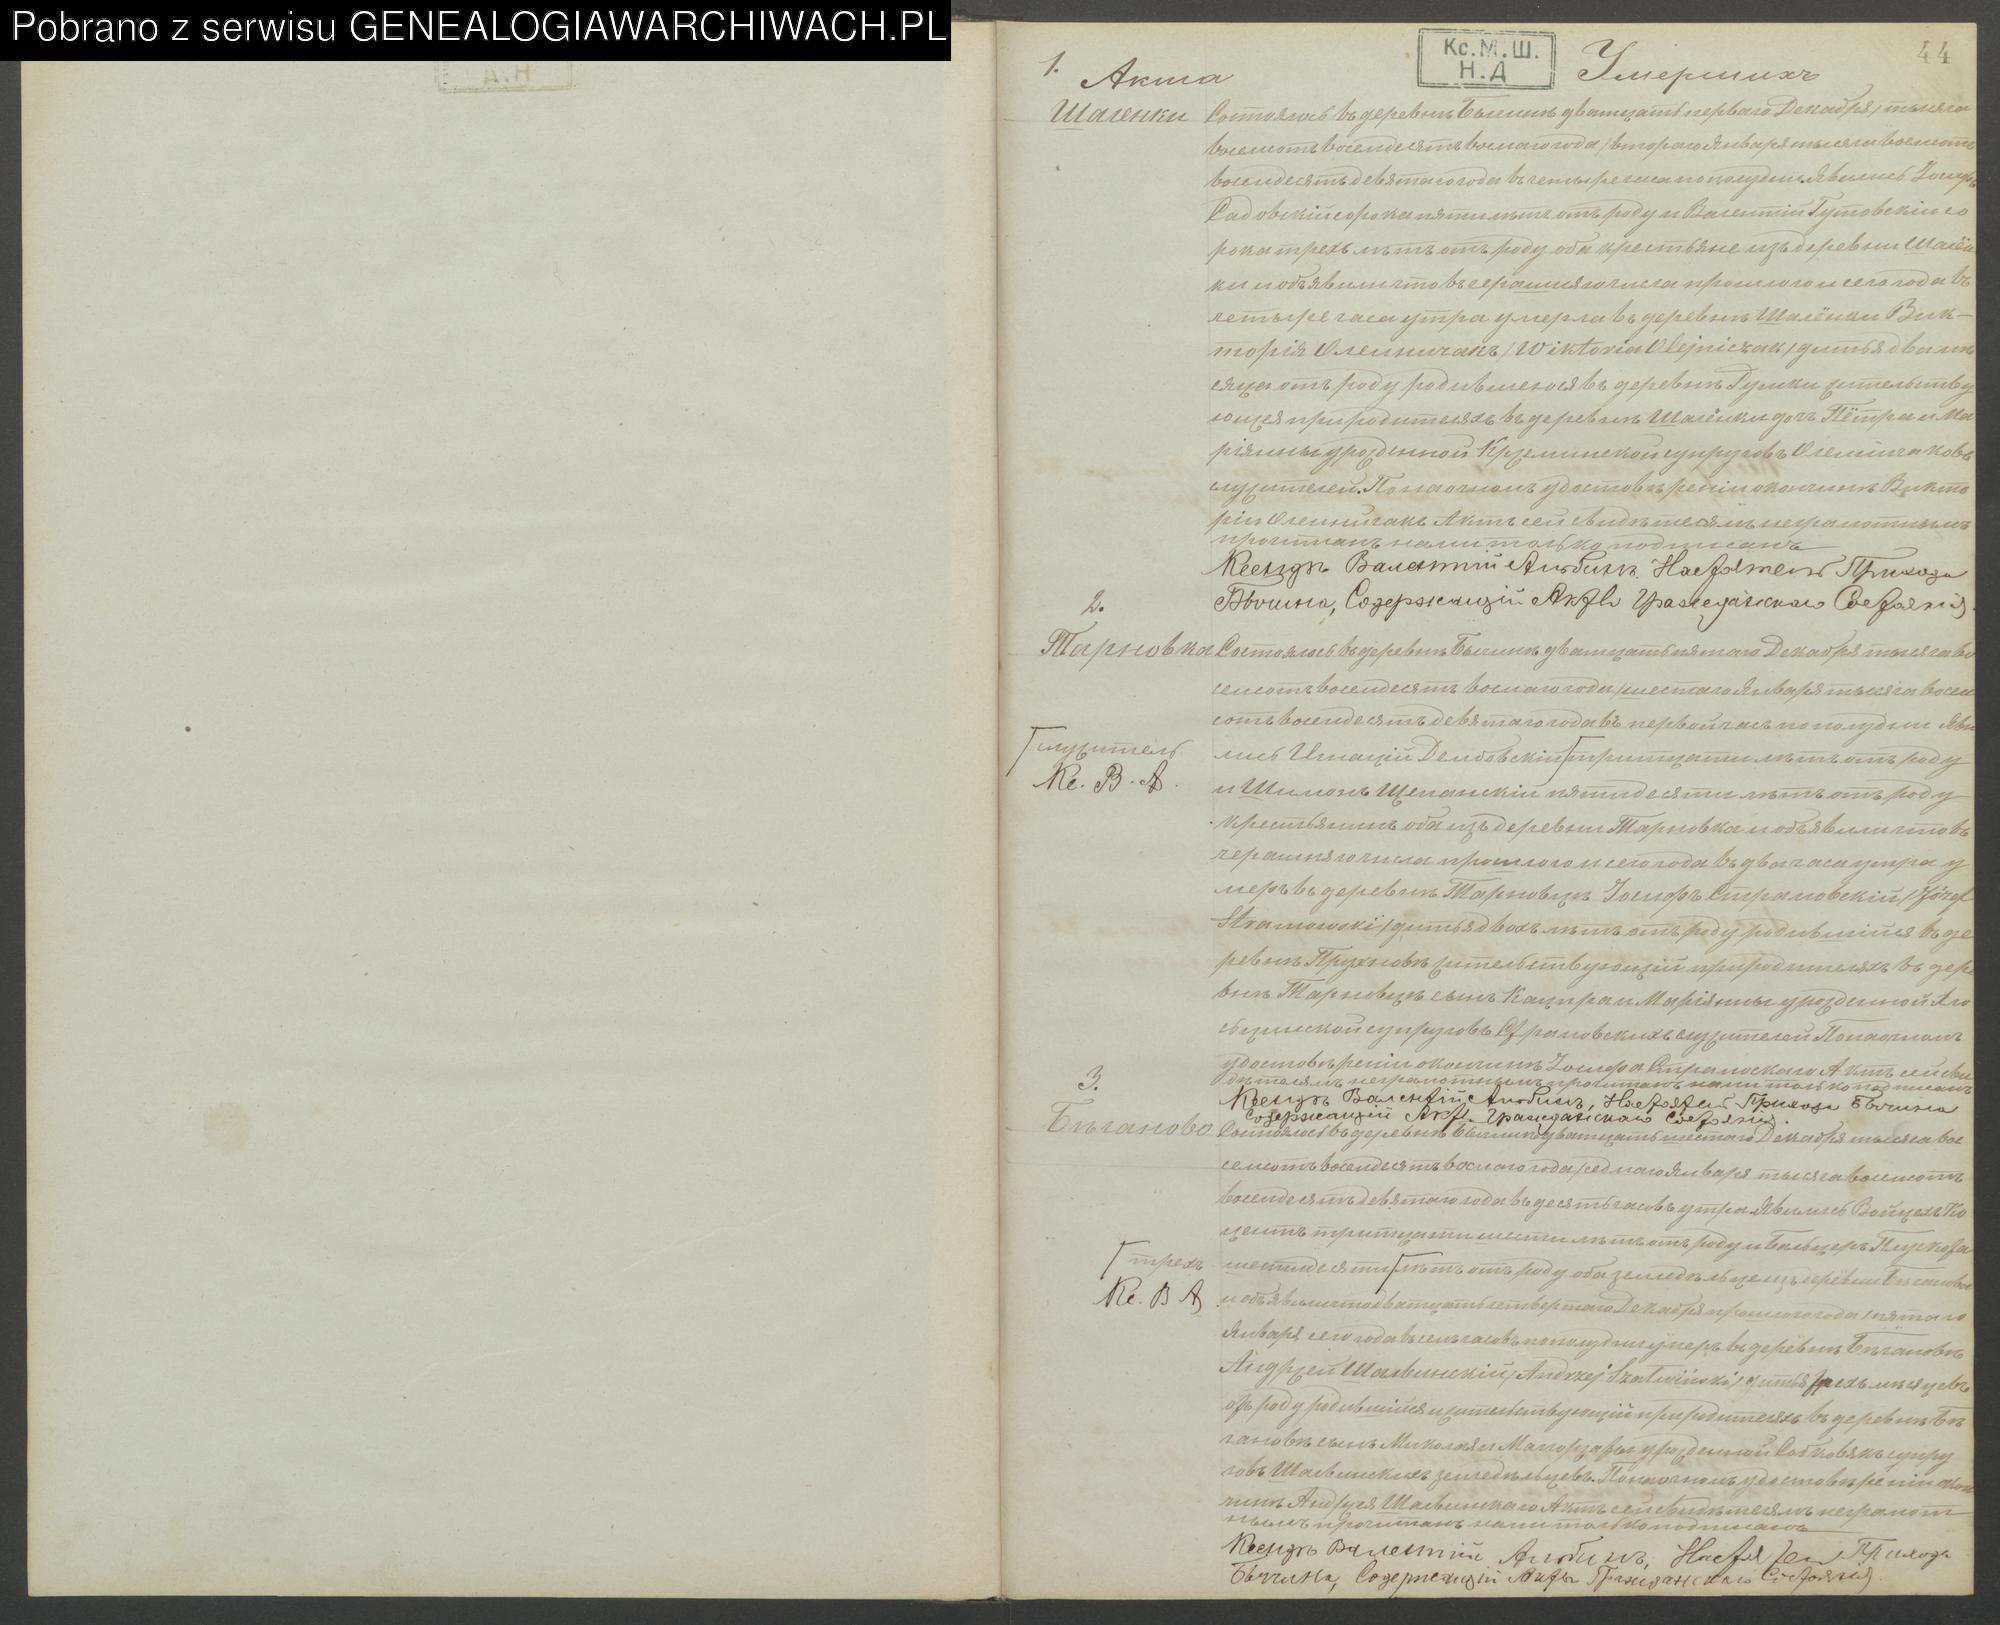 Pobrano z serwisu GENEALOGIAWARCHIWACH.PL
44
Кс.М.Ш.
Н.Д
1.
Акта Умершихъ
Шаленки
Состоялось въ деревнѣ Бычинѣ дватцать перваго Декабря / тысяча
восемсотъ восемдесятъ восмаго года / втораго Января тысяча восемсотъ
восемдесятъ девятаго года въ четыре часа пополудни. Явились Іосифъ
Садовскій сорока пяти лѣтъ отъ роду и Валентій Гутовскій со
рока трехъ лѣтъ отъ роду оба крестьяне изъ деревни Шалён
ки и объявили что вчерашняго числа прошлого и сего года въ
четыре часа утра умерла въ деревнѣ Шалёнки Вик-
торія Олейничакъ / Wiktoria Olejniczak / дитья два мѣ
сяца отъ роду родившеюся въ деревнѣ жительству
ющея при родителяхъ въ деревнѣ Шалёнки дочь Пётра и Ма
ріянны урожденной супруговъ Олейничаковъ
служителей. По наочномъ удостовѣреніи о кончинѣ Викто
ріи Олейничакъ Актъ сей свидѣтелямъ неграмотнымъ
прочитанъ нами только подписанъ
Ксендзъ Валентій Настоятель Прихода
Бычина, Содержащій Акты Гражданскаго Состоянія
2.
Тарновка
Состоялось въ деревнѣ Бычинѣ дватцать пятаго Декабря тысяча во
семсотъ восемдесятъ восмаго года / шестаго Января тысяча восем
сотъ восемдесятъ девятаго года въ первой часъ пополудни Яви
лись Игнацій Дембовскій тритцати лѣтъ отъ роду
служитель
Кс. В. А.
и Шимонъ Щепанскій пятидесяти лѣтъ отъ роду
крестьянинъ оба изъ деревни Тарновка и объявили что в
черашняго числа прошлого и сего года въ два часа утра у
меръ въ деревнѣ Тарновцѣ Іосифъ Страмовскій / Józef
Stramowski / дитья двохъ лѣтъ отъ роду родившійся въ де
ревнѣ жительствующій при родителяхъ въ дере
внѣ Тарновцѣ сынъ Кацпра и Маріянны урожденной
супруговъ Страмовскихъ служителей По наочномъ
удостовѣреніи о кончинѣ Іосифа Страмоскаго Актъ сей сви
дѣтелямъ неграмотнымъ прочитанъ нами только подписанъ
Ксендзъ Валентій Настоятель Прихода Бычина
Содержащій Акты Гражданскаго Состоянія.
3.
Бѣганово
Состоялось въ деревнѣ Бычинѣ дватцать шестаго Декабря тысяча вос
семсотъ восемдесятъ восмаго года / седмаго Января тысяча восемсотъ
восемдесятъ девятаго года въ десять часовъ утра. Явились Войцехъ
тритцати шести лѣтъ отъ роду и Бальцеръ
шестидесяти лѣтъ отъ роду оба земледѣльце изъ деревни Бѣганово
трехъ
Кс. В А
и объявили что дватцать четвертаго Декабря прошлого года / пятаго
Января сего года въ семъ часовъ пополудни умеръ въ деревнѣ Бѣгановѣ
Андржей Шалвинскій / Andrzej Szalwiński / дитья трехъ мѣсяцевъ
отъ роду родившійся и жительствующій при родителяхъ въ деревнѣ Бѣ
гановѣ сынъ Миколая и Малгоржаты урожденной супру
говъ Шалвинскихъ земледѣльцевъ. По наочномъ удостовѣреніи о кон
чинѣ Андржея Шалвинскаго Актъ сей свидѣтелямъ неграмот
нымъ прочитанъ нами только подписанъ
Ксендзъ Валентій Настоятель Прихода
Бычина, Содержащій Акты Гражданскаго Состоянія.